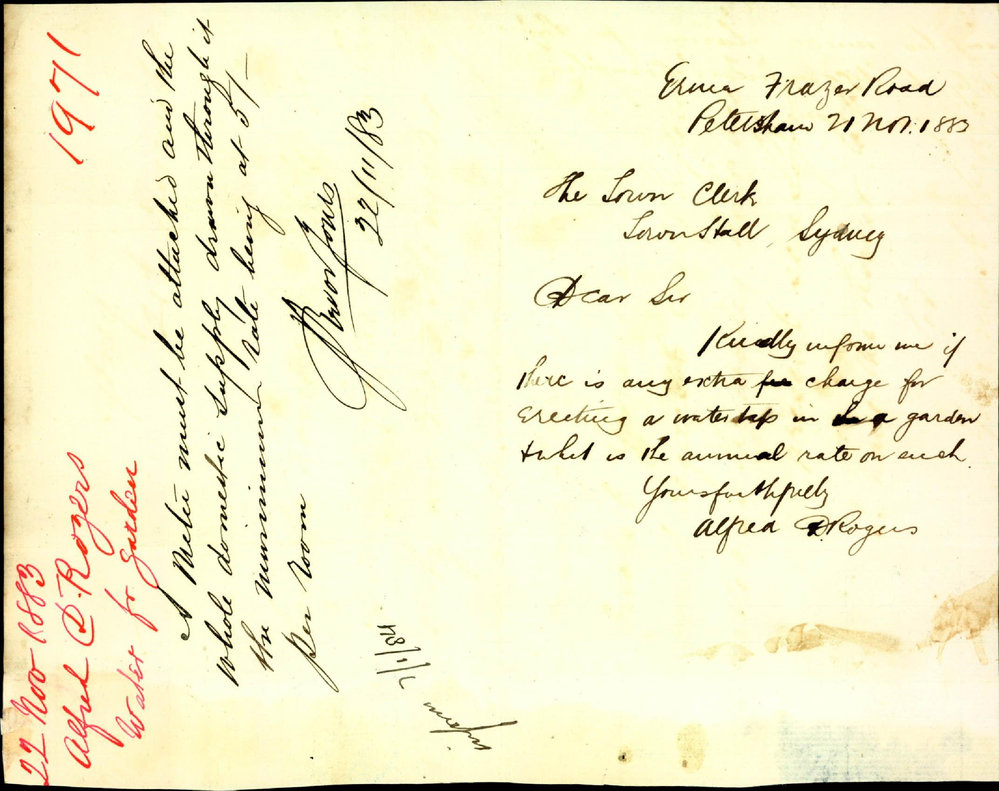 Erma Frazer Road
Petersham 21 Nov. 1883
The Town Clerk
Town Hall, Sydney
Dear Sir
Kindly inform me if
there is any extra for charge for
Erecting a water tap in a garden
& what is the annual rate on such.
Yours faithfully
Alfred D. Rogers
1971
22 Nov 1883
Alfred D. Rogers
Water for garden
A Meter must be attached and the
whole domestic supply drawn through it
the minimum rate being at 5/-
per room
22/11/83
Inform 7/1/84